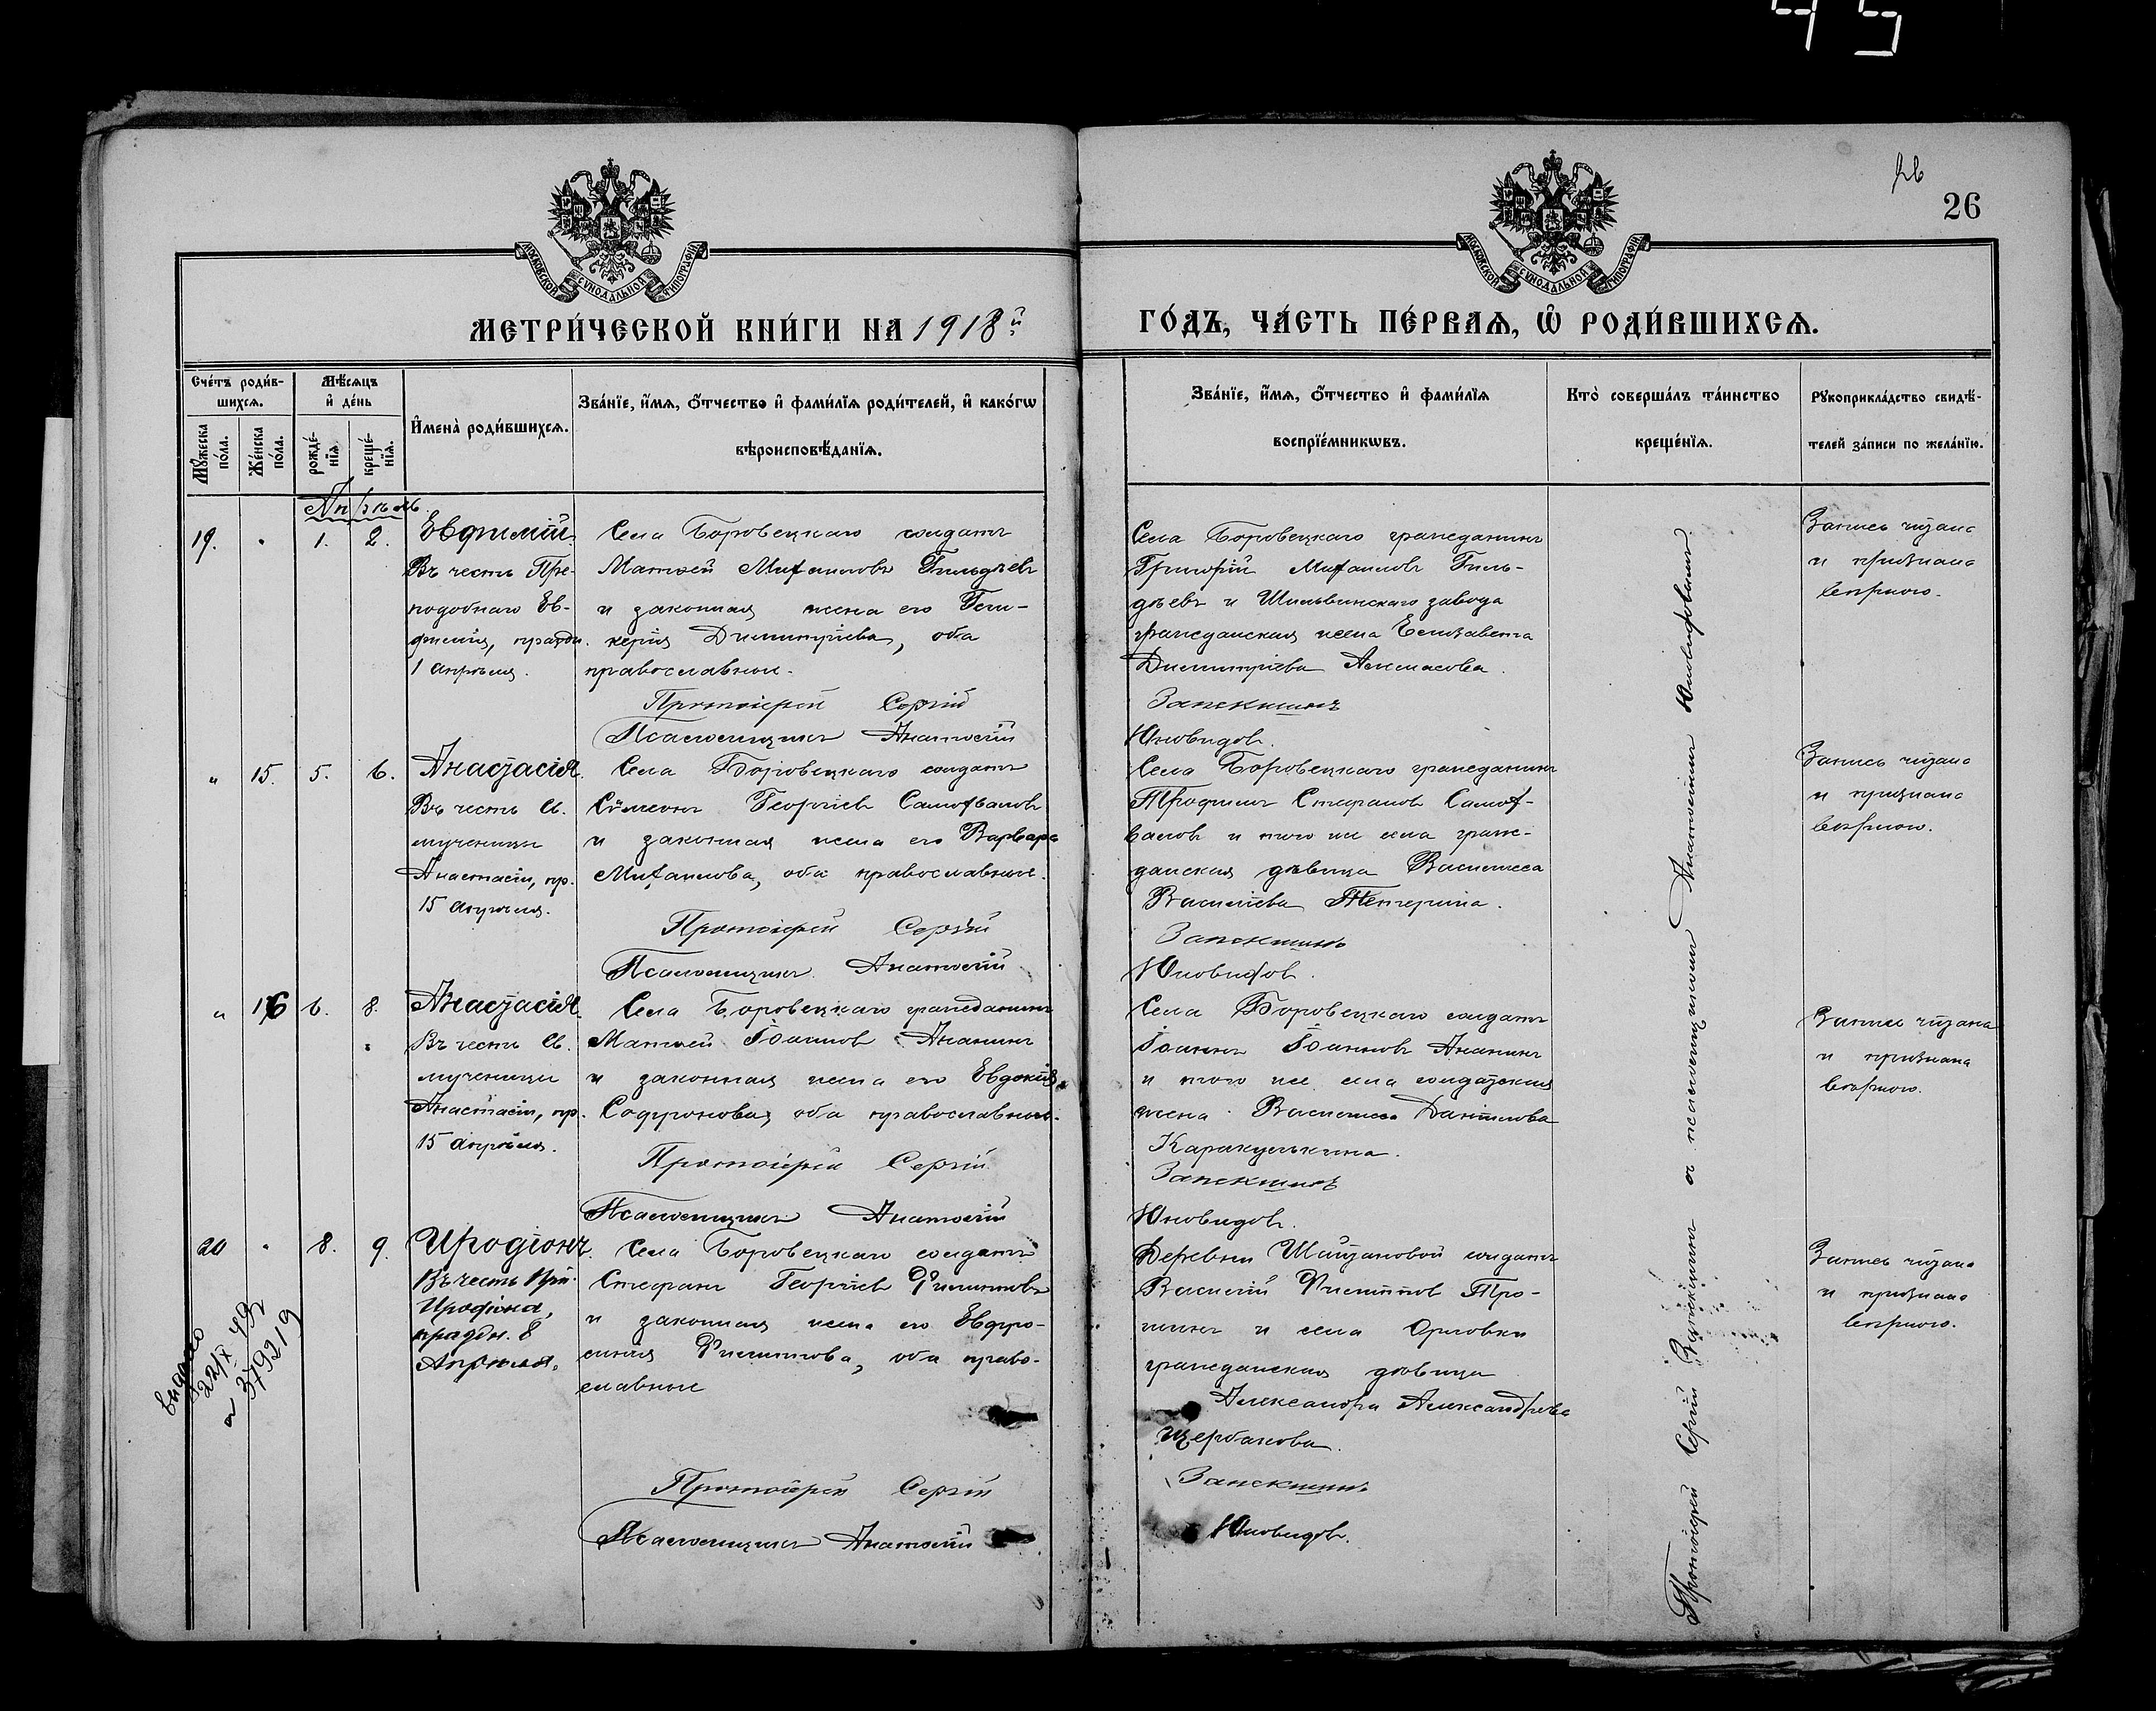 45
26
26
МОСКОВСКОЙ СУНОДАЛЬНОЙ ТИПОГРАФІИ
МОСКОВСКОЙ СУНОДАЛЬНОЙ ТИПОГРАФІИ
МЕТРИ́ЧЕСКОЙ КНИ́ГИ НА 1918й
ГО́ДЪ, ЧА́СТЬ ПЕ́РВАѦ, Ѡ҆ РОДИ́ВШИХСѦ.
Сче́тъ роди́в-
шихсѧ.
Мꙋ́жеска по́ла.
Же́нска по́ла.
Мѣ́сѧцъ
и҆ де́нь
рожде́-
нїѧ.
креще́-
нїѧ.
И҆мена̀ роди́вшихсѧ.
Зва́нїе, и҆́мѧ, ѻ҆́тчество и҆ фами́лїѧ роди́телей, и҆ како́гѡ
вѣроисповѣ́данїѧ.
Зва́нїе, и҆́мѧ, ѻ҆́тчество и҆ фами́лїѧ
воспрїе́мникѡвъ.
Кто̀ соверша́лъ та́инство
креще́нїѧ.
Рꙋкоприкла́дство свидѣ́-
телей за́писи по жела́нїю.
Апрѣль
19. " 1. 2.
Евфимій.
Въ честь Пре-
подобнаго Ев-
фимія, праздн.
1 апрѣля.
Села Боровецкаго солдатъ
Матѳей Михаиловъ Гильдѣев
и законная жена его Гли-
керія Димитріева, оба
православные.
Протоіерей Сергій
Псаломщикъ Анатолій
Села Боровецкаго гражданинъ
Григорій Михаиловъ Гиль-
дѣевъ и Шильвинскаго завода
гражданская жена Елизавета
Димитріева
Запекшинъ
Юновидов.
Запись читана
и признана
вѣрною.
" 15. 5. 6.
Анастасія.
Въ честь Св.
мученицы
Анастасіи, пр.
15 апрѣля.
Села Боровецкаго солдатъ
Сѵмеонъ Георгіев Самохвалов
и законная жена его Варвара
Михаилова, оба православные.
Протоіерей Сергій
Псаломщикъ Анатолій
Села Боровецкаго гражданинъ
Трофимъ Стефанов Самох-
валов и того же села граж-
данская дѣвица Васильева
Запекшинъ
Юновидов.
Запись читана
и признана
вѣрною.
" 16 6. 8.
Анастасія.
Въ честь Св.
мученицы
Анастасіи, пр.
15 апрѣля.
Села Боровецкаго гражданинъ
Матѳей Іоаннов Ананинъ
и законная жена его Евдокія
Софронова, оба православные.
Протоіерей Сергій
Псаломщикъ Анатолій
Села Боровецкаго солдатъ
Іоаннъ Іоаннов Ананинъ
и того же села солдатская
жена Василисса Даніилова
Каракулькина.
Запекшинъ
Юновидов.
Запись читана
и признана
вѣрною.
20 " 8. 9.
Иродіонъ.
Въ честь
Иродіона,
праздн. 8
Апрѣля.
Села Боровецкаго солдатъ
Стефанъ Георгіев Филиппов
и законная жена его Евфро-
синія Филиппова, оба право-
славные
Протоіерей Сергій
Псаломщикъ Анатолій
Деревни солдатъ
Василій Филиппов Про-
и села Орловки
гражданская дѣвица
Александра Александрова
Щербакова.
Запекшинъ
Юновидов.
Запись читана
и признана
вѣрною.
выдано
22/X 49
379219
Протоіерей Сергій Запекшинъ съ псаломщикомъ Анатоліемъ Юновидовымъ